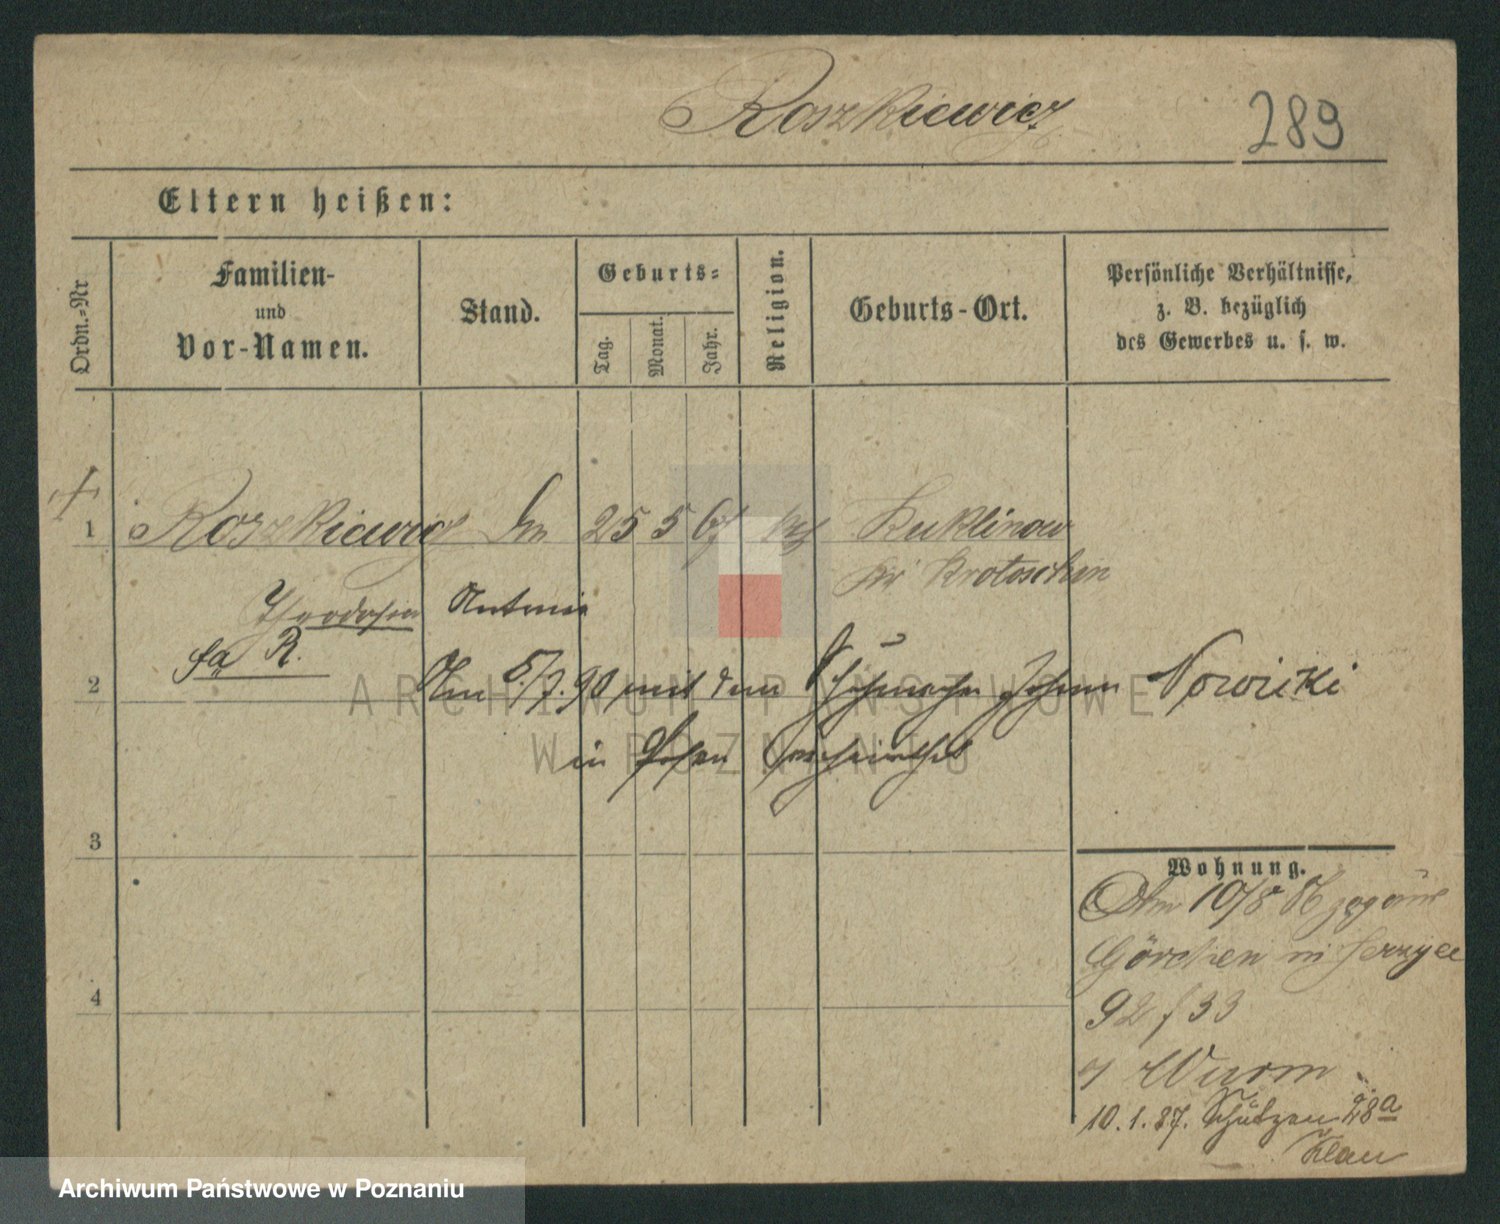 Roszkiewicz
289
Eltern heißen:
Ordn.-Nr
Familien-
und
Vor-Namen.
Stand.
Geburts-
Tag.
Monat.
Jahr.
Religion.
Geburts-Ort.
Persönliche Verhältnisse,
z. B. bezüglich
des Gewerbes u. s. w.
1 Roszkiewicz 25 5 Kuklinow
Kr Krotoschin
Theodosia Antonie
R.
2 Am 5/7.90 mit dem Schuhmacher Johann Nowicki
in Posen verheirathet
3
4
Wohnung.
Am 10/8 zog aus
Görchen in Jerzyce
92 f 33
Wurm
10.1.87. Schützen 28a
Klau
ARCHIWUM PAŃSTWOWE
W POZNANIU
Archiwum Państwowe w Poznaniu